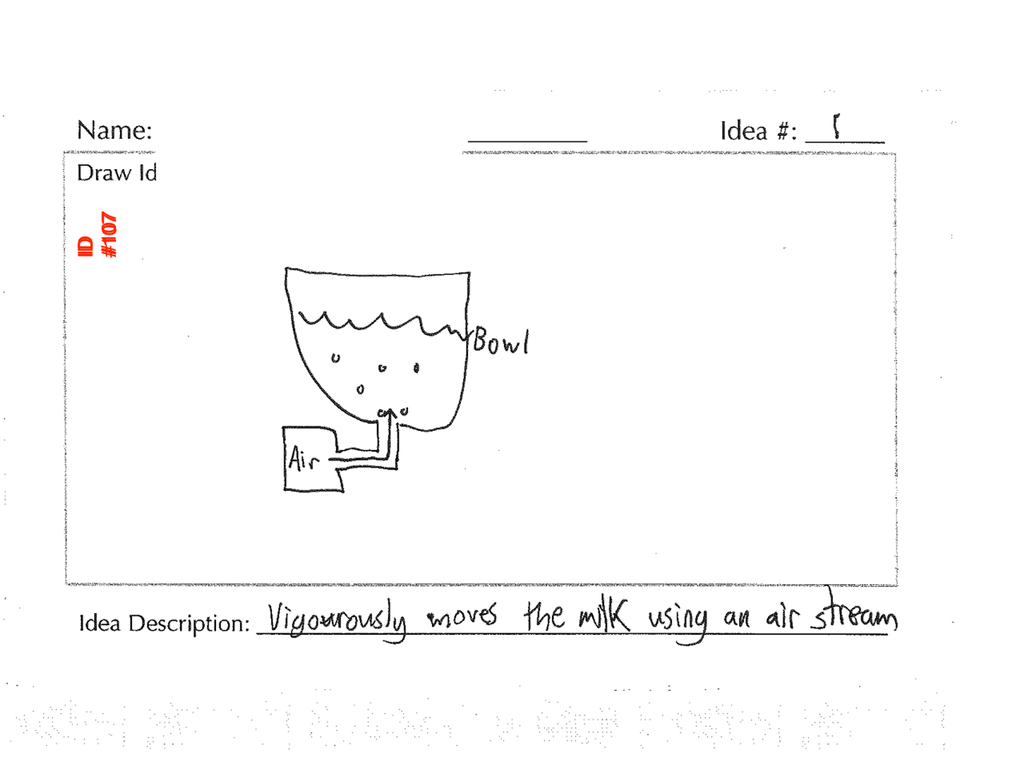 Name:
Idea #: 1
Draw Id
ID
#107
Bowl
Air
Idea Description: Vigourously moves the milk using an air stream